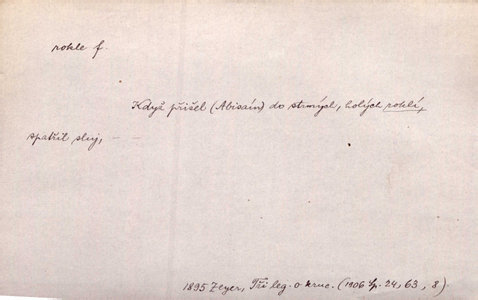 rokle f.
Když přišel (Abisain) do strmých, holých roklí,
spatřil sluj, — —
1895 Zeyer, Tři leg. o kruc. (1906 Sp. 24, 63, 8).